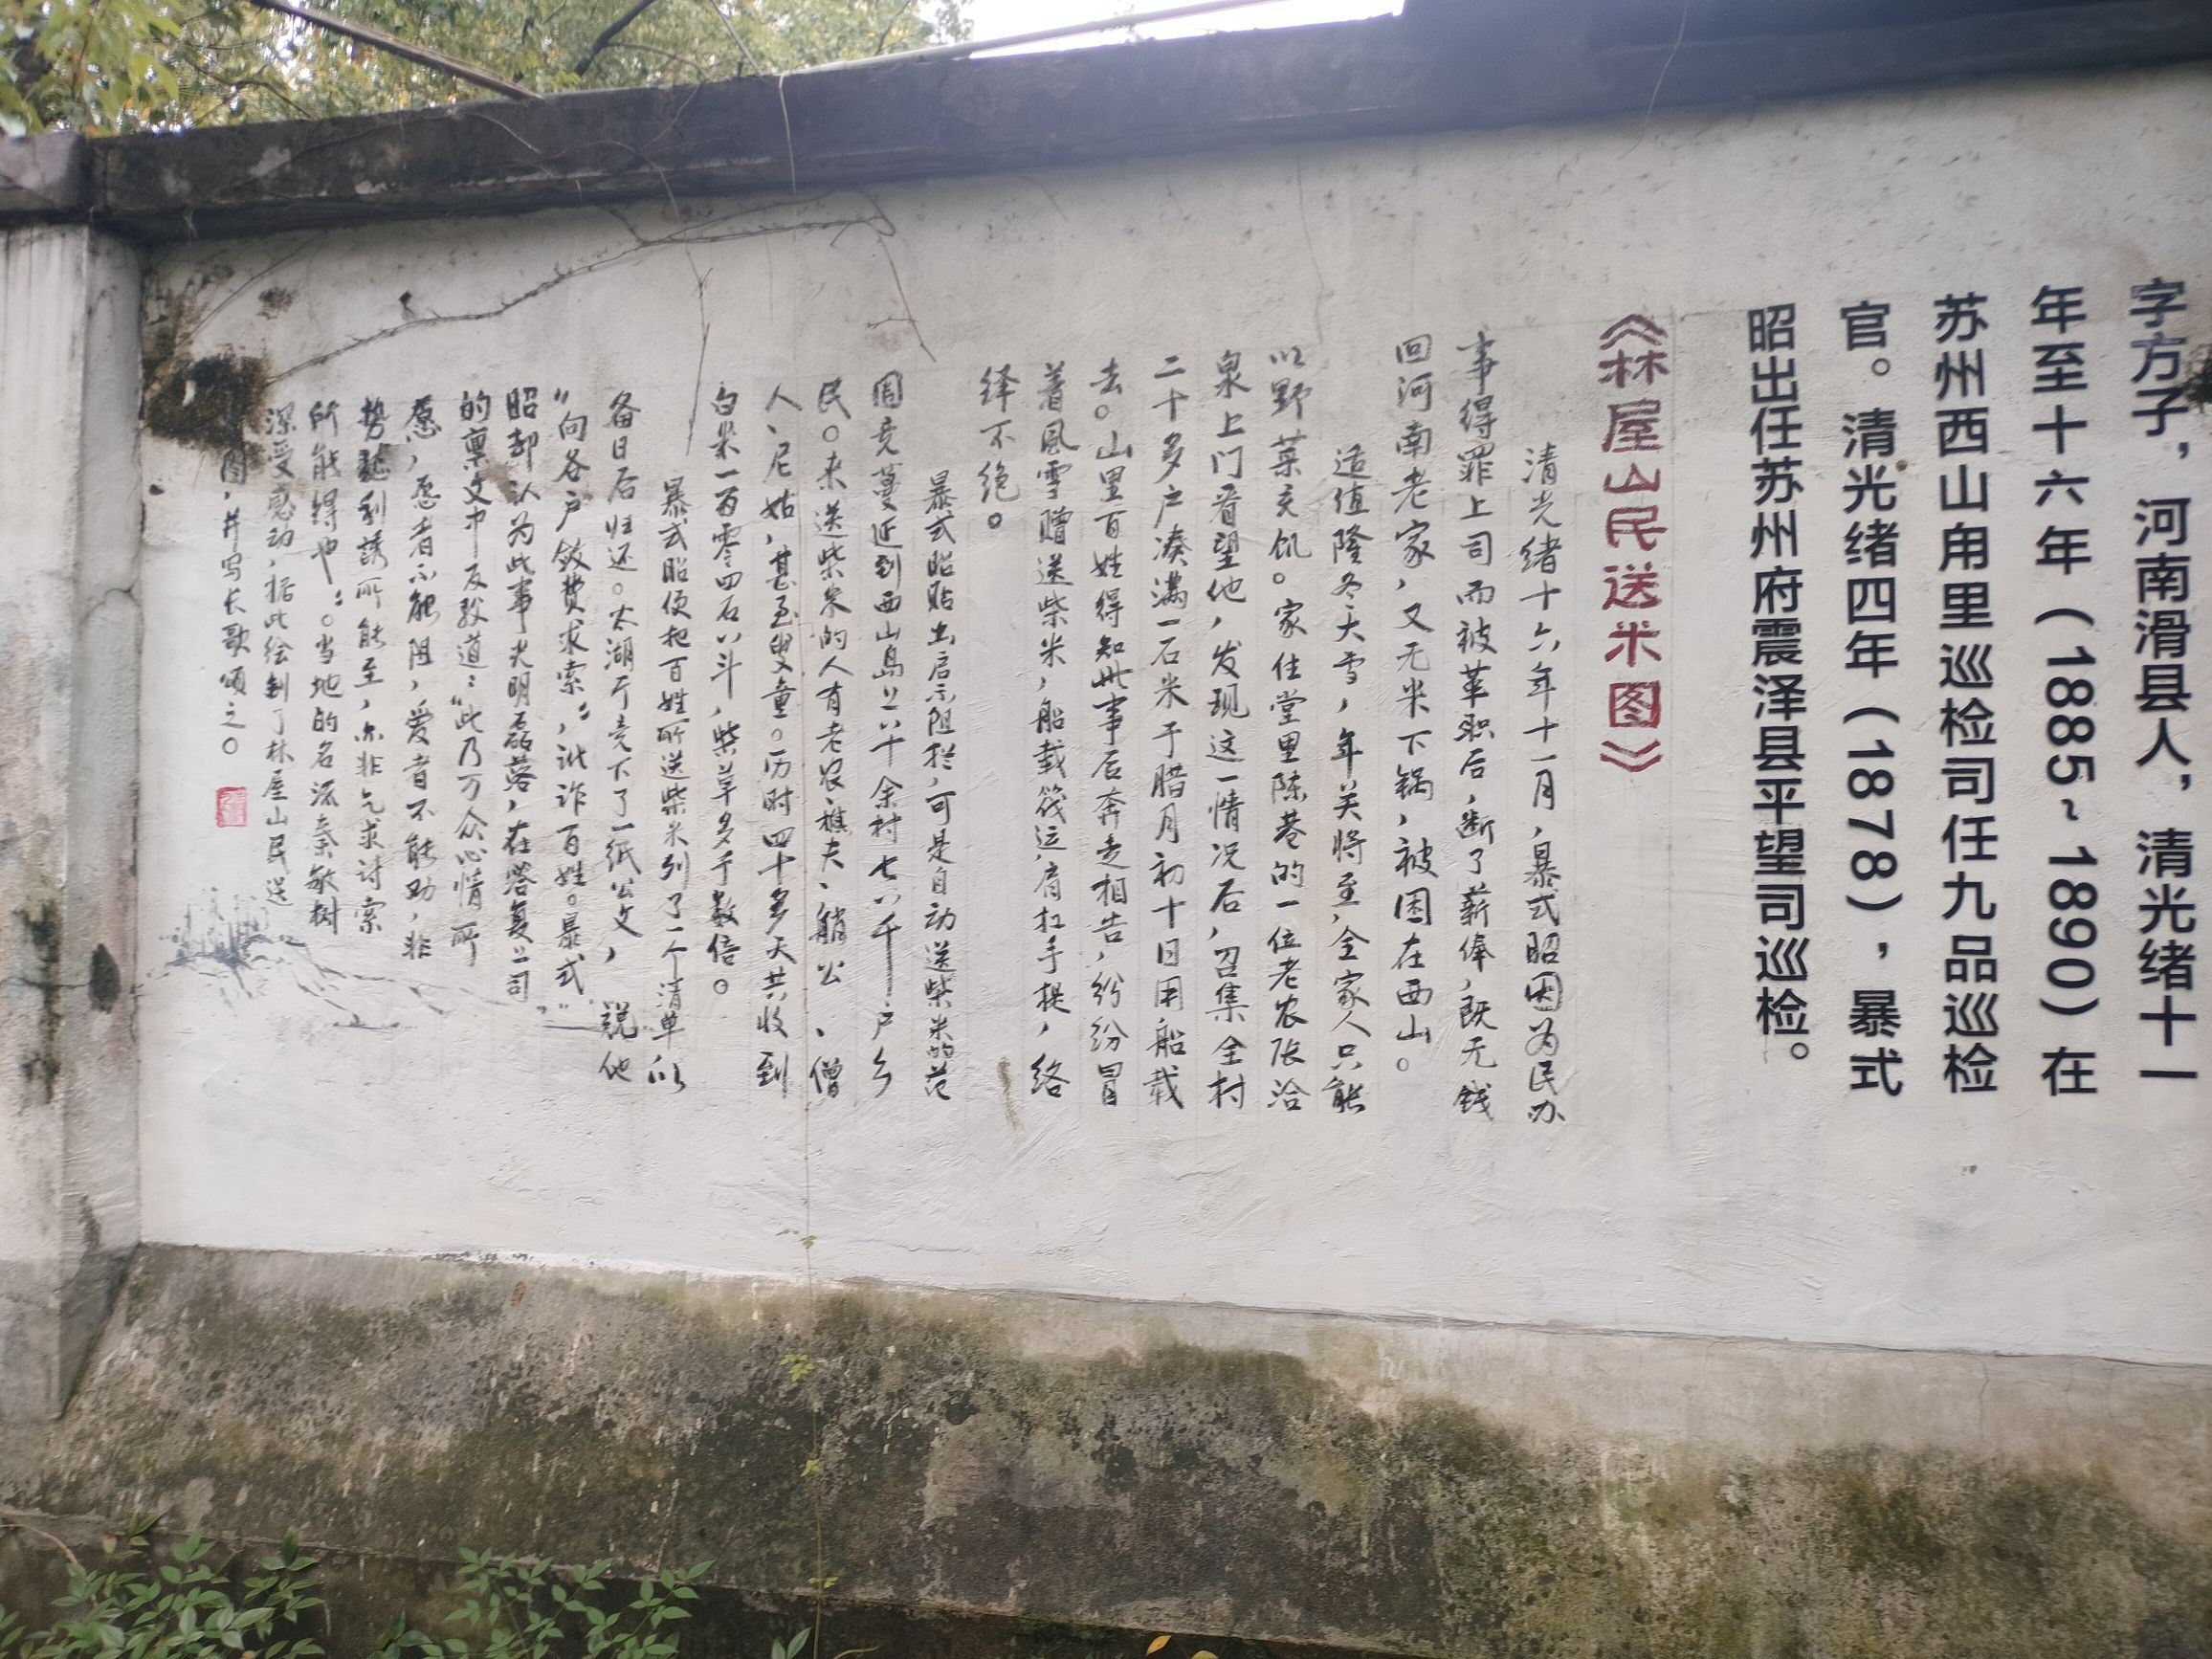 字方子，河南滑县人，清光绪十一
年至十六年（1885~1890）在
苏州西山甪里巡检司任九品巡检
官。清光绪四年（1878），暴式
昭出任苏州府震泽县平望司巡检。
《林屋山民送米图》
清光绪十六年十一月，暴式昭因为民办
事得罪上司而被革职后，断了薪俸，既无钱
回河南老家，又无米下锅，被困在西山。
适值隆冬大雪，年关将至，全家人只能
以野菜充饥。家住堂里陈巷的一位老农张洽
泉上门看望他，发现这一情况后，召集全村
二十多户凑满一石米于腊月初十日用船载
去。山里百姓得知此事后奔走相告，纷纷冒
着风雪赠送柴米，船载筏运，肩扛手提，络
绎不绝。
暴式昭贴出启示阻拦，可是自动送柴米的范
围竟蔓延到西山岛上八十余村七八千户乡
民。来送柴米的人有老农、樵夫、艄公、僧
人、尼姑，甚至叟童。历时四十多天共收到
白米一百零四石八斗，柴草多千数倍。
暴式昭便把百姓所送柴米列了一个清单以
备日后归还。太湖厅竟下了一纸公文，说他
"向各户敛费求索"，讹诈百姓。暴式
昭却认为此事光明磊落，在答复上司
的禀文中反驳道："此乃万众心情所
愿，恶者不能阻，爱者不能劝，非
势驱利誘所能至，亦非乞求讨索
所能得也"。当地的名流秦敏树
深受感动，据此绘制了林屋山民送
图，并写长歌颂之。